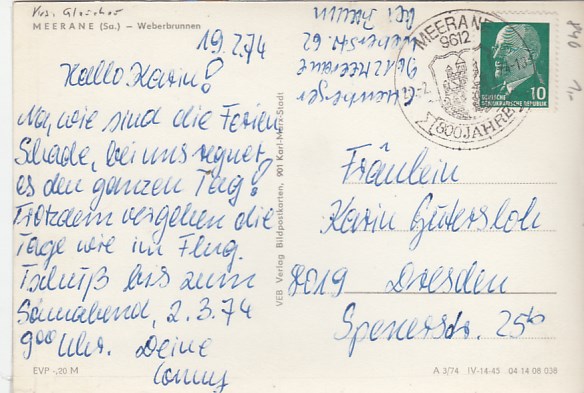 Krs. Glauchau
MEERANE (Sa.) – Weberbrunnen
19.2.74
Hallo Karin!
Na, wie sind die Ferien
Schade, bei uns regnet
es den ganzen Tag.
Trotzdem vergehen die
Tage wie im Flug.
Tschüß bis zum
Sonnabend, 2.3.74
900 Uhr. Deine
Conny
EVP -,20 M
VEB Verlag Bildpostkarten, 901 Karl-Marx-Stadt
9612 MEERANE
Weberstr. 62
bei
MEERANE
9612
800 JAHRE
DEUTSCHE
DEMOKRATISCHE REPUBLIK
10
Fräulein
Karin Gütersloh
8019 Dresden
Spenerstr. 25b
A 3/74 IV-14-45 04 14 08 038